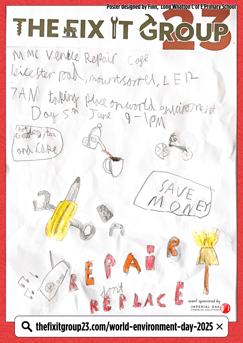 Poster designed by Finn, Long Whatton C of E Primary School
THE FIX IT GROUP
23
MMC Venue Repair Cafe
Leicester road, mountsorrel, LE12
7AN taking place on world environment
Day 5th June 9-1PM
and Cake
SAVE
MONEY
REPAIR
dont
REPLACE
event sponsored by
IMPERIAL GAS
thefixitgroup23.com/world-environment-day-2025